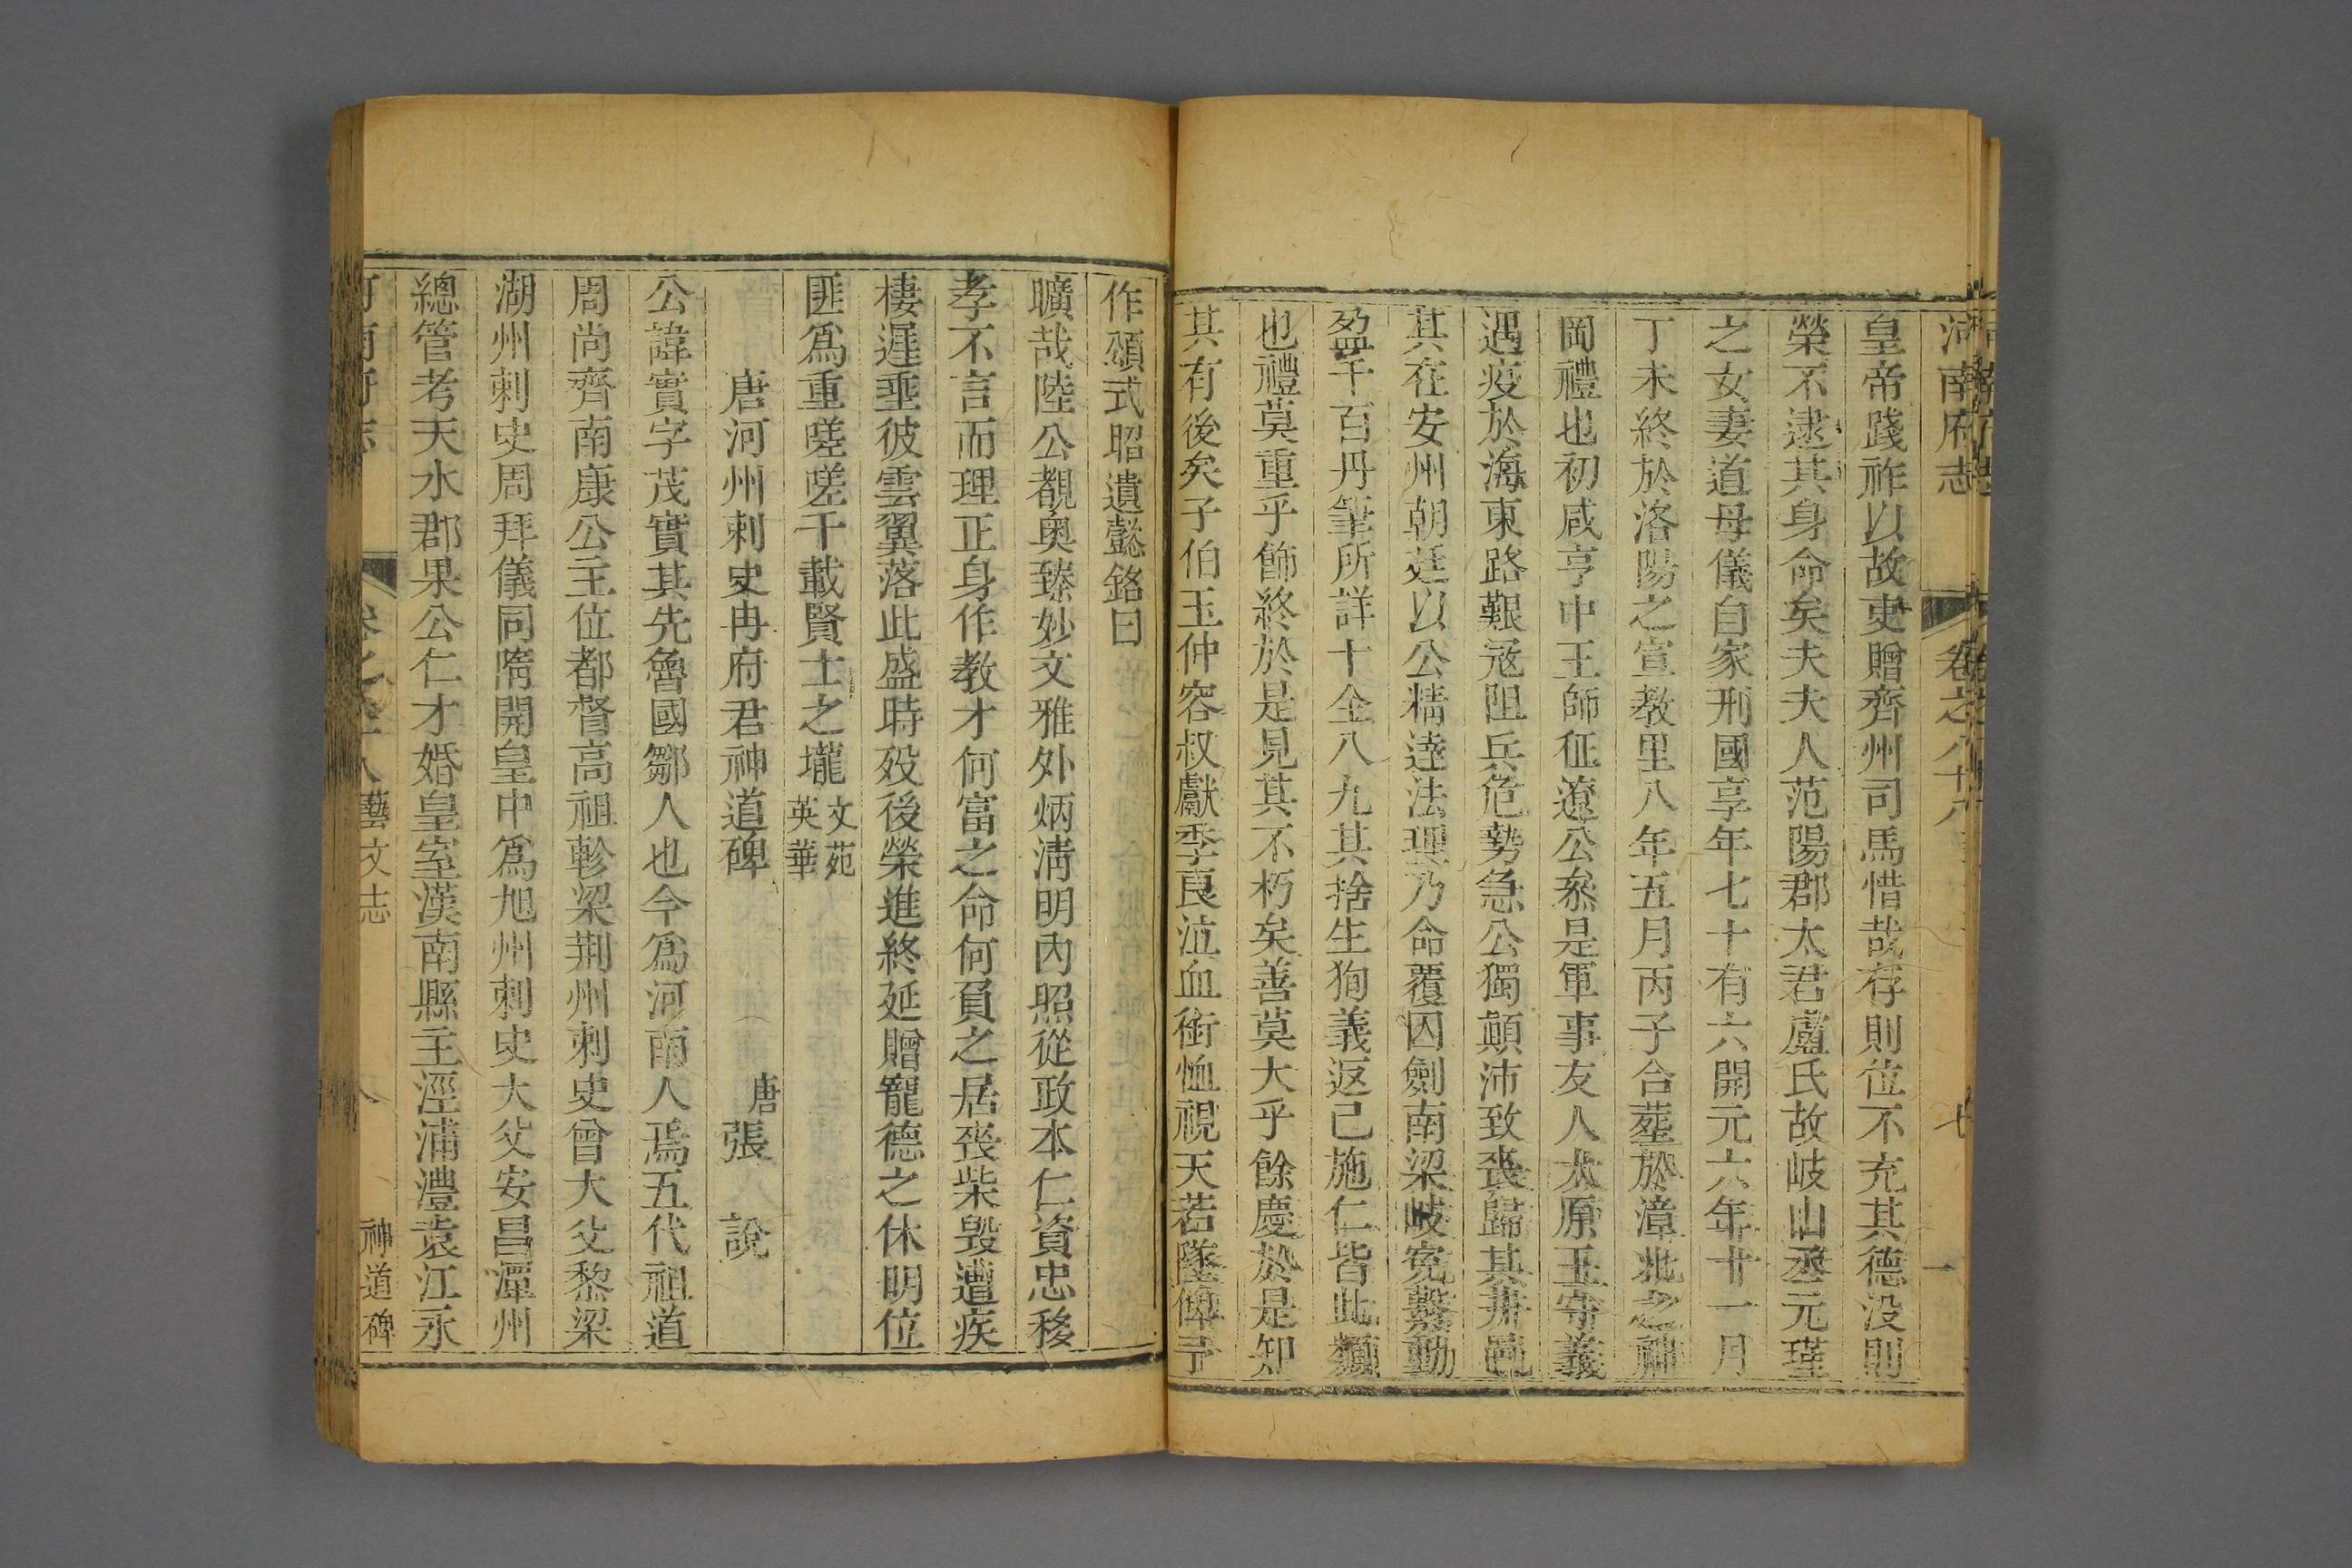 河南府志 卷之八十八 七
皇帝踐祚以故吏贈齊州司馬惜哉存則位不充其德没則
榮不逮其身命矣夫夫人范陽郡太君盧氏故岐山丞元瑾
之女妻道母儀自家刑國享年七十有六開元六年廿一月
丁未終於洛陽之宣教里八年五月丙子合葬於漳北之神
岡禮也初咸亨中王師征遼公叅是軍事友人太原王守義
遇疫於海東路艱宼阻兵危勢急公獨顛沛致喪歸其井邑
其在安州朝廷以公精逹法理乃命覆囚劍南梁岐寃繫動
盈千百丹筆所詳十全八九其捨生狥義返己施仁皆此類
也禮莫重乎飾終於是見其不朽矣善莫大乎餘慶於是知
其有後矣子伯玉仲容叔獻季良泣血銜恤視天若墜俾予
作頌式昭遺懿銘曰
曠哉陸公覩奥臻妙文雅外炳淸明內照從政本仁資忠移
孝不言而理正身作教才何富之命何負之居喪柴毁遭疾
棲遲垂彼雲翼落此盛時歿後榮進終延贈寵德之休明位
匪爲重嗟嗟千載賢士之壠 文苑英華
唐河州刺史冉府君神道碑 唐張 說
公諱實字茂實其先魯國鄒人也今爲河南人焉五代祖道
周尚齊南康公主位都督高祖軫梁荆州刺史曾大父黎梁
湖州刺史周拜儀同隋開皇中爲旭州刺史大父安昌潭州
總管考天水郡果公仁才婚皇室漢南縣主涇浦澧袁江永
河南府志 卷之八十八 藝文志 八 神道碑